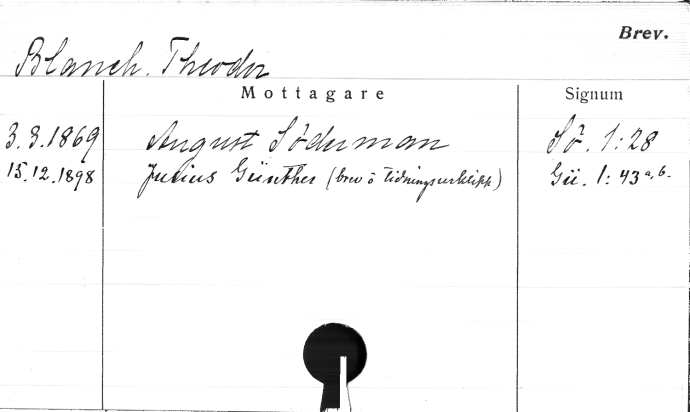 Brev.
Blanch. Theodor
Mottagare Signum
3.3.1869 August Söderman Sö. 1:28
15.12.1898 Julius Günther (brev o tidningsurklipp) Gü. 1:43 a,b.